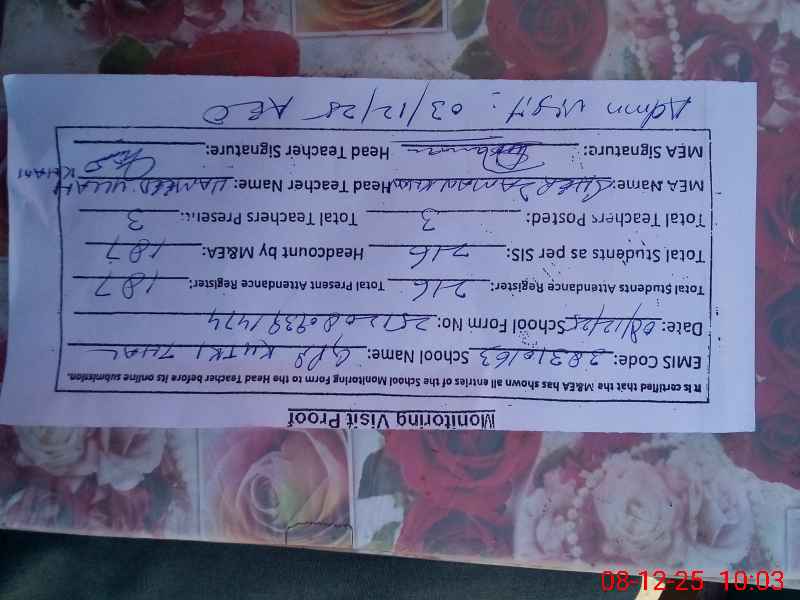 Monitoring Visit Proof
It is certified that the M&EA has shown all entries of the School Monitoring Form to the Head Teacher before its online submission.
EMIS Code: 38310163 School Name: GPS KUTKI THAL
Date: 08/12/25 School Form No: 25120809391474
Total Students Attendance Register: 216 Total Present Attendance Register: 187
Total Students as per SIS: 216 Headcount by M&EA: 187
Total Teachers Posted: 3 Total Teachers Present: 3
MEA Name: SHER ZAMAN KHAN Head Teacher Name: HAMEED ULLAH KHAN
MEA Signature: Head Teacher Signature:
Admn visit: 03/12/25 AEO
08-12-25 10:03